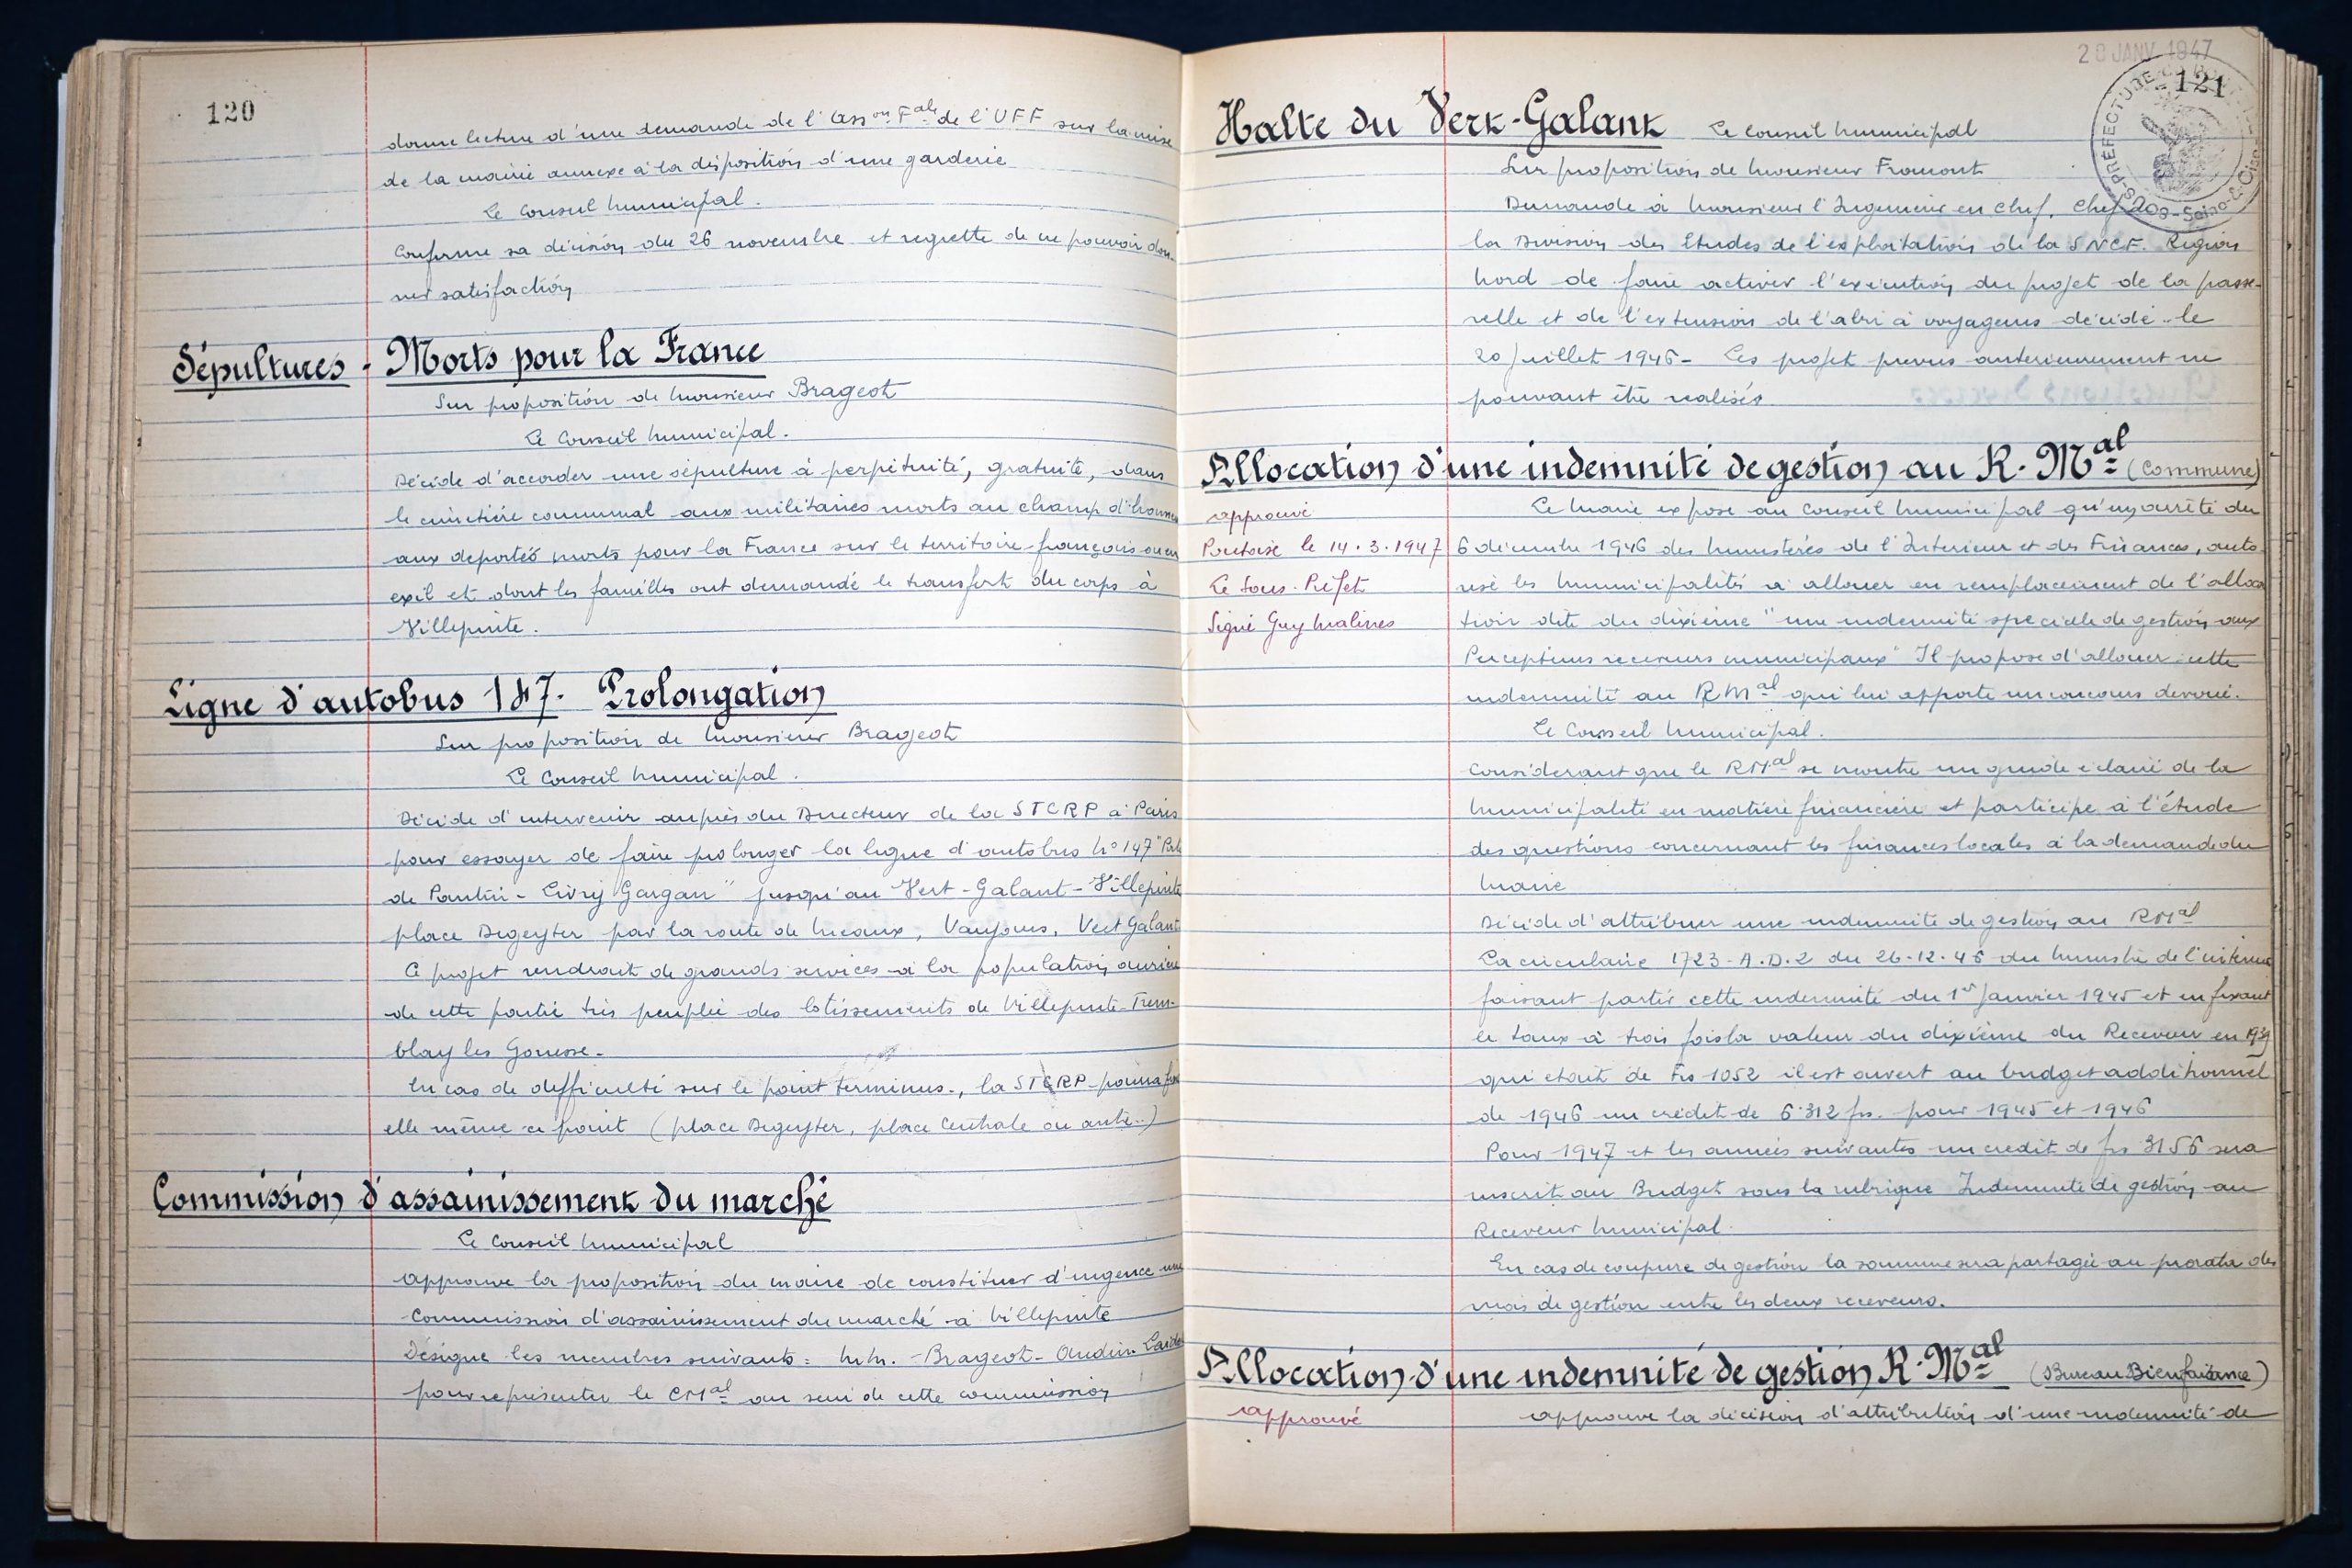 120
donne lecture d'une demande de l'Asson Fale de l'UFF sur la mise
de la mairie annexe à la disposition d'une garderie
Le Conseil Municipal.
Confirme sa décision du 26 novembre et regrette de ne pouvoir don-
ner satisfaction
Sépultures - Morts pour la France
Sur proposition de Monsieur Brageot
Le Conseil Municipal.
Décide d'accorder une sépulture à perpétuité, gratuite, dans
le cimetière communal aux militaires morts au champ d'honneur
aux deportés morts pour la France sur le territoire français ou en
exil et dont les familles ont demandé le transfert du corps à
Villepinte.
Ligne d'autobus 147. Prolongation
Sur proposition de Monsieur Brageot
Le Conseil Municipal.
Décide d'intervenir auprès du Directeur de la STCRP à Paris
pour essayer de faire prolonger la ligne d'autobus No 147 "Porte
de Pantin - Livry Gargan" jusqu'au Vert-Galant-Villepinte
place Degeyter par la route de Meaux, Vaujours, Vert Galant
Ce projet rendrait de grands services à la population ouvrière
de cette partie très peuplée des lotissements de Villepinte-Trem-
blay les Gonesse.
En cas de difficulté sur le point terminus., la STCRP pourra fixer
elle même ce point (place Degeyter, place Centrale ou autre..)
Commission d'assainissement du marché
Le Conseil Municipal
approuve la proposition du maire de constituer d'urgence une
Commission d'assainissement du marché à Villepinte
Désigne les membres suivants: MM. Brageot - Audin
pour représenter le CMal au sein de cette commission
28 JANV 1947
121
SOUS-PRÉFECTURE DE PONTOISE Seine-&-Oise
Halte du Vert-Galant Le Conseil Municipal
Sur proposition de Monsieur Fromont
Demande à Monsieur l'Ingenieur en Chef, Chef de
la Division des Etudes de l'exploitation de la SNCF. Région
Nord de faire activer l'exécution du projet de la passe-
relle et de l'extension de l'abri à voyageurs décidé le
20 Juillet 1946 - Les projet prevus anterieurement ne
pouvant être realisés
Allocation d'une indemnité de gestion au R. Mal (Commune)
approuvé
Pontoise le 14.3.1947
Le Sous-Préfet
Signé Guy Malines
Le Maire expose au Conseil Municipal qu'un arrêté du
6 décembre 1946 des Ministères de l'Interieur et des Finances, auto
rise les Municipalités à allouer en remplacement de l'alloca
tion dite du dixième "une indemnité speciale de gestion aux
Percepteurs receveurs municipaux" Il propose d'allouer cette
indemnité au RMal qui lui apporte un concours devoué.
Le Conseil Municipal.
Considerant que le RMal se montre un guide éclairé de la
Municipalité en matière financière et participe à l'étude
des questions concernant les finances locales à la demande du
Maire
Décide d'attribuer une indemnité de gestion au RMal
La circulaire 1723-A.D.2 du 26-12-46 du Ministre de l'intérieur
faisant partir cette indemnité du 1er Janvier 1945 et en fixant
le taux à trois fois la valeur du dixième du Receveur en 1939
qui etait de Frs 1052 il est ouvert au budget additionnel
de 1946 un crédit de 6.312 frs. pour 1945 et 1946
Pour 1947 et les années suivantes un credit de frs 3156 sera
inscrit au Budget sous la rubrique Indemnité de gestion au
Receveur Municipal.
En cas de coupure de gestion la somme sera partagée au prorata des
mois de gestion entre les deux receveurs.
Allocation d'une indemnité de gestion R. Mal (Bureau Bienfaisance)
approuvé
approuve la décision d'attribution d'une indemnité de